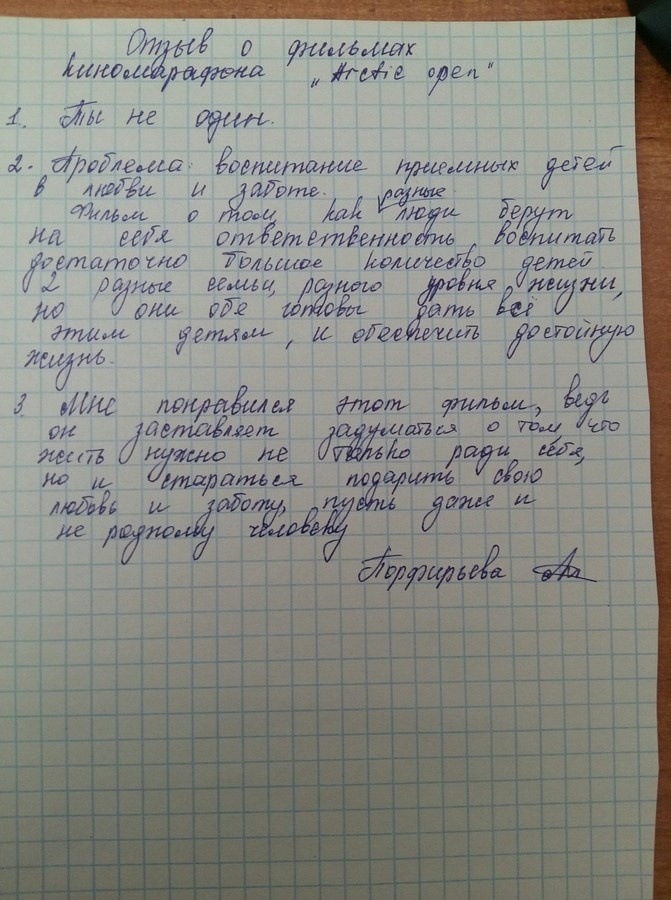 Отзыв о фильмах
киномарафона "Arctic open"
1. Ты не один.
2. Проблема: воспитание приемных детей
в любви и заботе.
Фильм о том, как разные люди берут
на себя ответственность, воспитать
достаточно большое количество детей
2 разные семьи, разного уровня жизни,
но они обе готовы дать всё
этим детям, и обеспечить достойную
жизнь.
3. Мне понравился этот фильм, ведь
он заставляет задуматься о том, что
жить нужно не только ради себя,
но и стараться подарить свою
любовь и заботу, пусть даже и
не родному человеку
Порфирьева